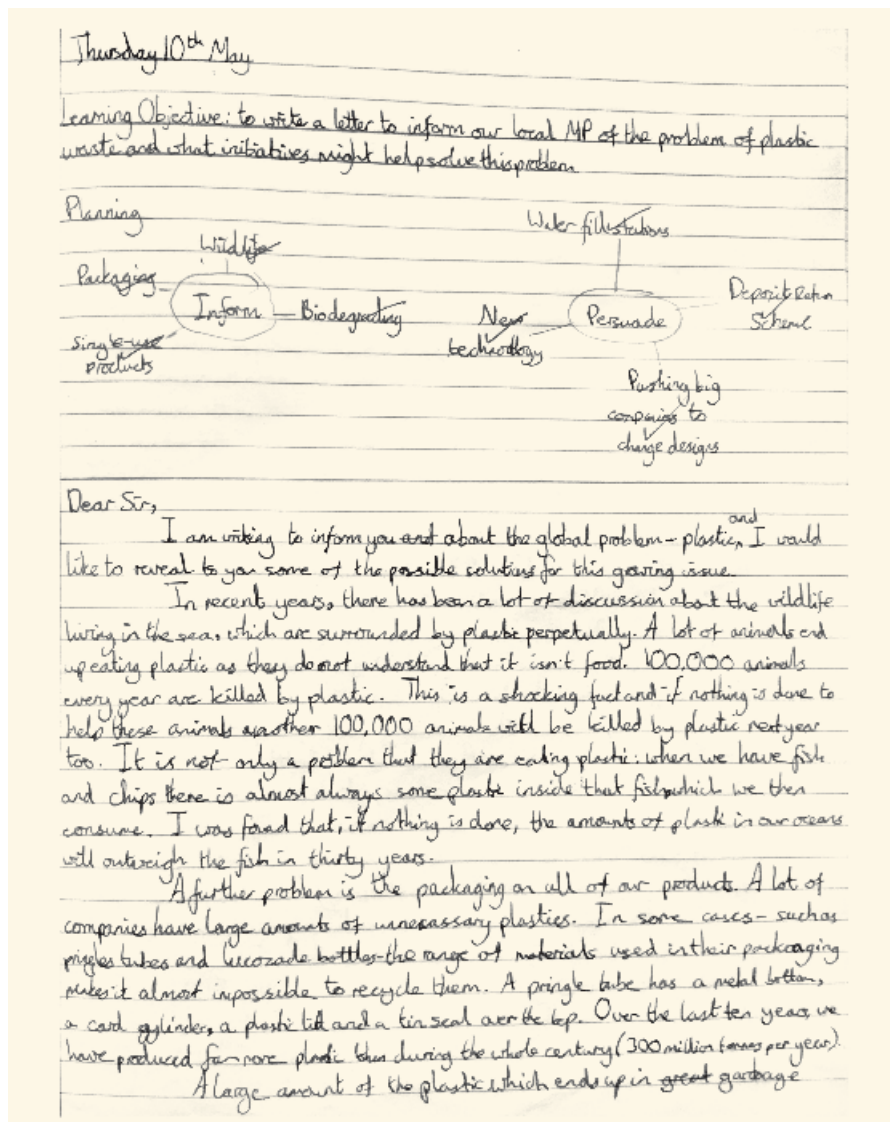 Thursday 10th May
Learning Objective: to write a letter to inform our local MP of the problem of plastic
waste and what initiatives might help solve this problem
Planning
Wildlife
Packaging
Inform
Biodegrading
Single-use
products
Water fill stations
New
technology
Persuade
Deposit Return
Scheme
Pushing big
companies to
change designs
Dear Sir,
and
I am writing to inform you and about the global problem - plastic, I would
like to reveal to you some of the possible solutions for this growing issue.
In recent years, there has been a lot of discussion about the wildlife
living in the sea, which are surrounded by plastic perpetually. A lot of animals end
up eating plastic as they do not understand that it isn't food. 100,000 animals
every year are killed by plastic. This is a shocking fact and if nothing is done to
help these animals another 100,000 animals will be killed by plastic next year
too. It is not only a problem that they are eating plastic: when we have fish
and chips there is almost always some plastic inside that fish which we then
consume. I was found that, if nothing is done, the amounts of plastic in our oceans
will outweigh the fish in thirty years.
A further problem is the packaging on all of our products. A lot of
companies have large amounts of unnecassary plastics. In some cases - such as
pringles tubes and lucozade bottles - the range of materials used in their packaging
makes it almost impossible to recycle them. A pringle tube has a metal bottom,
a card cylinder, a plastic lid and a tin seal over the top. Over the last ten years, we
have produced far more plastic than during the whole century (300 million tonnes per year).
A large amount of the plastic which ends up in great garbage